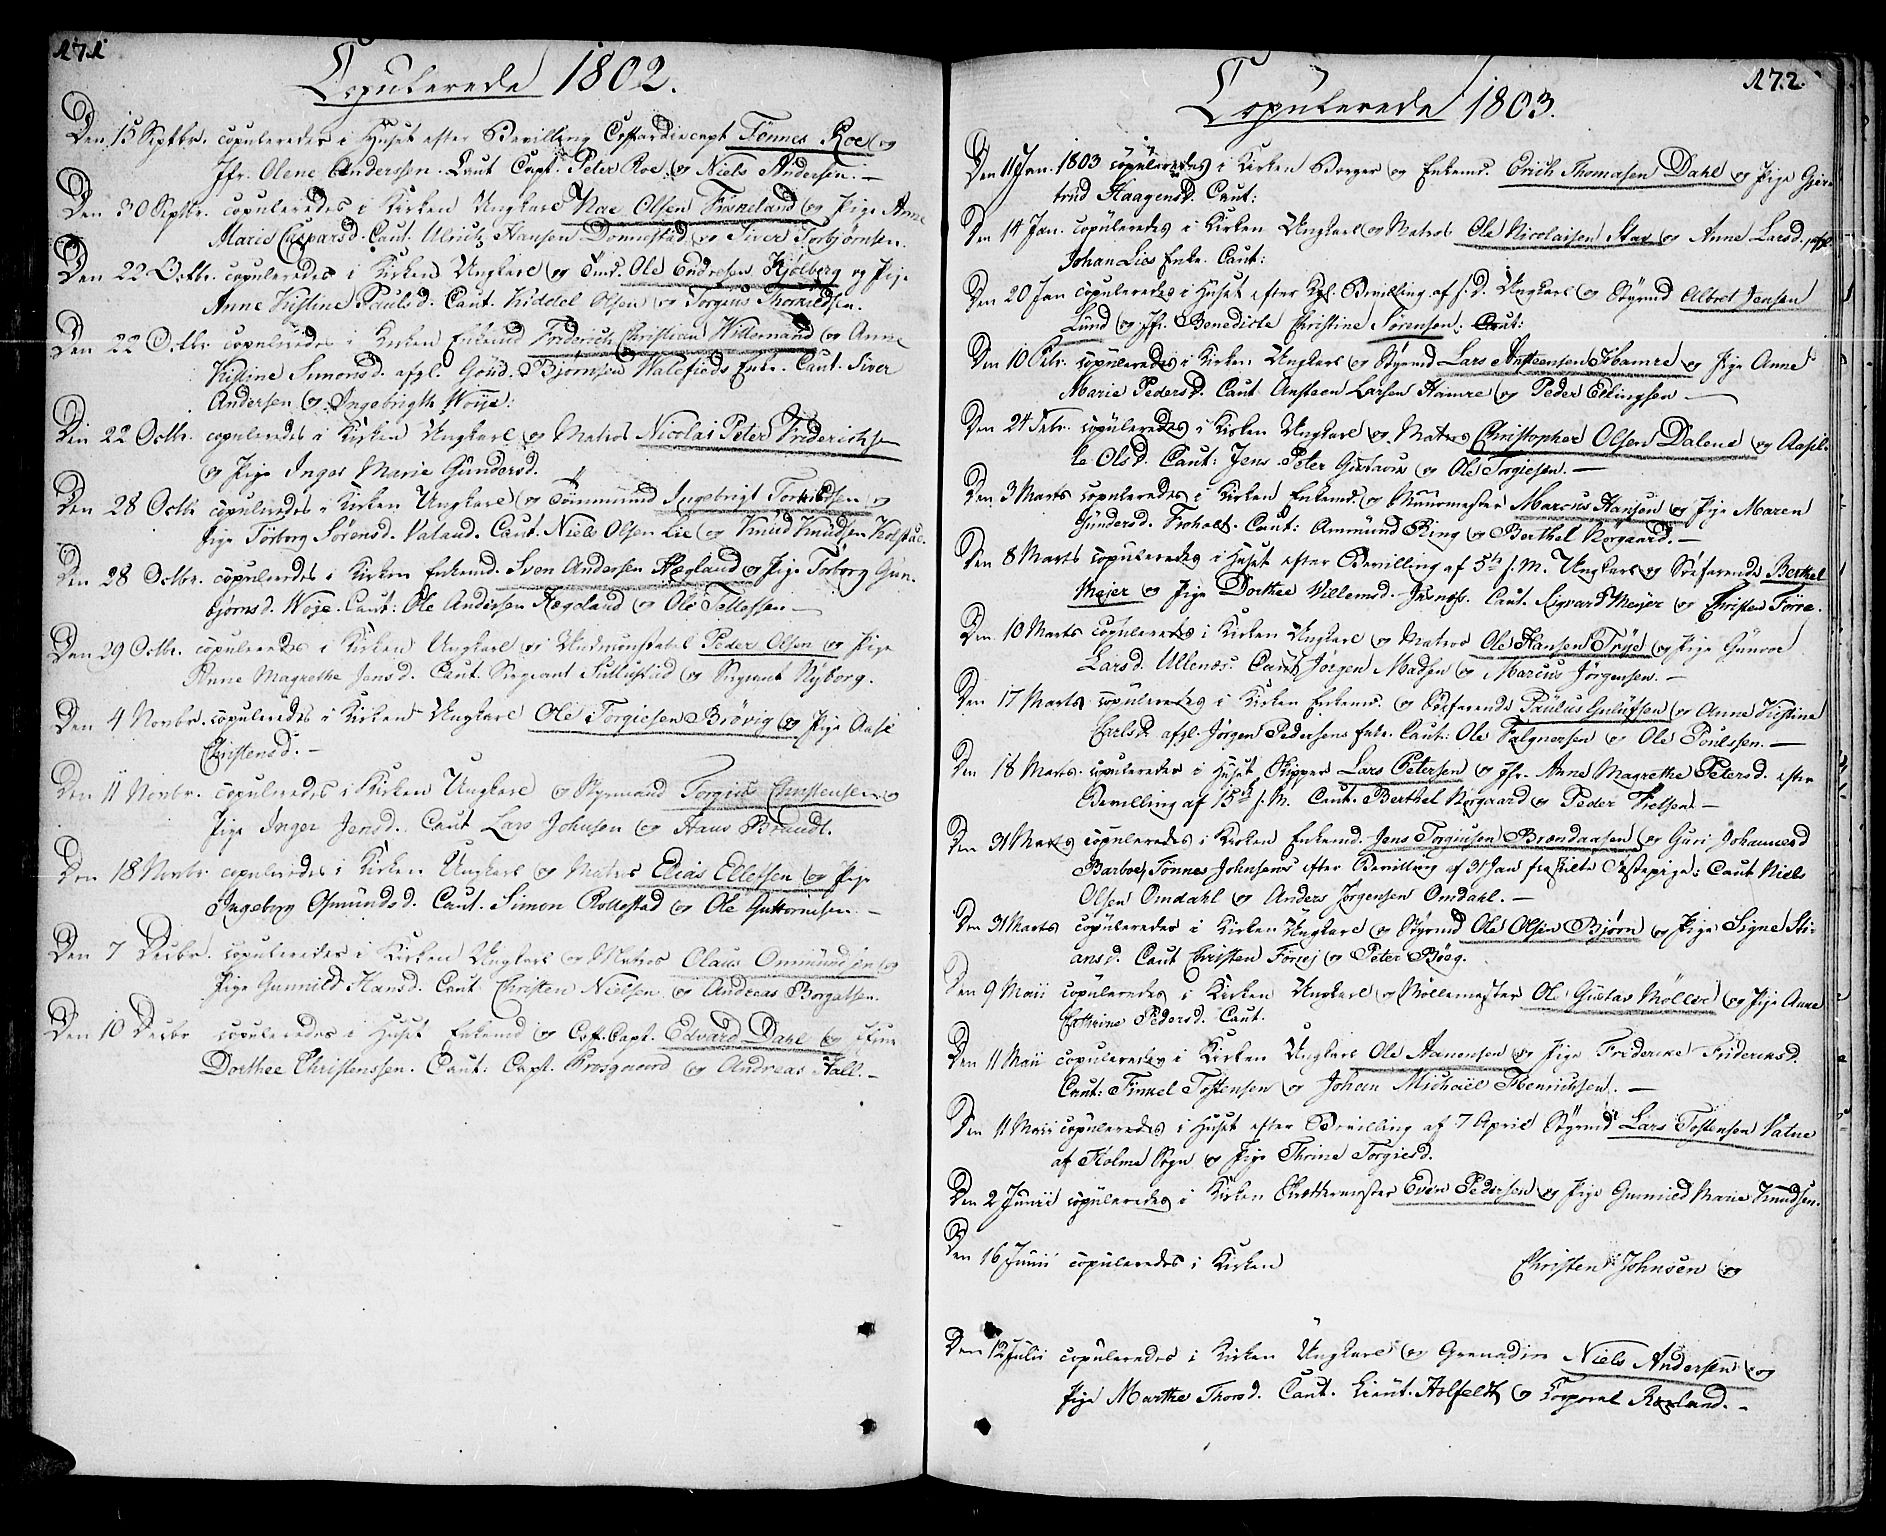 171
Copulerede 1802.
Den 15 Septbr. copuleredes i Huset efter Bevilling Tønnes Roe og
Jfr. Olene Anderssen. Caut Capt. Peter Roe og Niels Andersen. —
Den 30 Septbr. copuleredes i Kirken Ungkarl Olsen og Pige Anne
Marie Caspersd. Caut. Ulrich Hansen Donnestad og Siver Torbjørnsen.
Den 22 Octbr. copuleredes i Kirken Ungkarl og Ole Endresen Kjølberg og Pige
Anne Kistine Paulsd. Caut. Kiddel Olsen og Torgius Thorildsen.
Den 22 Octbr copuleredes i Kirken Enkemd Friderich Christian Hildemand og Anne
Kistine Simonsd. afgl. Bjørnsen Enke. Caut. Siver
Andersen og Ingebrigth Woije.
Den 22 Octbr. copuleredes i Kirken Ungkarl og Matros Nicolai Peter Friderichsen
og Pige Inger Marie Gundersd.
Den 28 Octbr copuleredes i Kirken Ungkarl og Tømmermd Ingebrigt Terkildsen og
Pige Torborg Sørensd. Vatand. Caut. Niels Olsen Lie og Knud Knudsen
Den 28 Octbr. copuleredes i Kirken Enkemd. Sven Andersen Hægeland og Pige Torborg Gun-
bjørnsd. Woje. Caut: Ole Andersen Hægeland og Ole Tellefsen —
Den 29 Octbr. copuleredes i Kirken Ungkarl og Peder Olsen og Pige
Anne Magrethe Jensd. Caut. Sergeant og Sergeant Nyborg.
Den 4 Novbr. copuleredes i Kirken Ungkarl Ole Torgiesen Brøvig og Pige Aase
Christensd. —
Den 11 Novbr. copuleredes i Kirken Ungkarl og Styrmand Torgius Christensen og
Pige Inger Jensd. Caut Lars Johnsen og Hans Brandt.
Den 18 Novbr copuleredes i Kirken Ungkarl og Matros Elias Ellefsen og Pige
Ingeborg Osmundsd. Caut. Simon Rollestad og Ole Guttormsen. —
Den 7 Decbr. copuleredes i Kirken Ungkarl og Matros Olaus Ommundsen og
Pige Gunnild Hansd. Caut Christen Nielsen og Andreas Borgalsen.
Den 10 Decbr copuleredes i Huset Enkemd og Capt. Edvard Dahl og
Dorthee Christenssen. Caut: Capt. og Andreas Fall. —
172.
Copulerede 1803.
Den 11 Jan. 1803 copuleredes i Kirken Borger og Enkemd. Erich Thomasen Dahl og Pige Gier-
trud Haagensd. Caut:
Den 14 Jan. copuleredes i Kirken Ungkarl og Matros Ole Nicolaisen Stax og Anne Larsd. afgl.
Johan Lies Enke. Caut:
Den 20 Jan copuleredes i Huset efter Kgl. Bevilling af s. D. Ungkarl og Styrmd Albret Jensen
Lund og Jfr. Benedicte Christine Sørensen. Caut:
Den 10 Febr. copuleredes i Kirken Ungkarl og Styrmd Lars Ansteensen Hamre og Pige Anne
Marie Pedersd. Caut Ansteen Larsen Hamre og Peder Ellingsen —
Den 24 Febr. copuleredes i Kirken Ungkarl og Matros Christopher Olsen Dalene og Aasil-
le Olsd. Caut: Jens Peter Gustavus og Ole Torgiesen. —
Den 3 Marts copuleredes i Kirken Enkemd. og Muurmester Marcus Hansen og Pige Maren
Gundersd. Froholt. Caut: Ammund Ring og Berthel Norgaard. —
Den 8 Marts copuleredes i Huset efter Bevilling af 5te s. M. Ungkarl og Søefarende Berthel
Meyer og Pige Dorthee Villemsd. Caut. Sigvard Meyer og Christen Torre.
Den 10 Marts copuleredes i Kirken Ungkarl og Matros Ole Hansen Trye og Pige Gunroe
Larsd. Ullenæs. Caut Jørgen Madsen og Marcus Jørgensen. —
Den 17 Marts copuleredes i Kirken Enkemd. og Søefarende Paulus Gulufsen og Anne Kistine
Carlsd. afgl. Jørgen Pedersens Enke. Caut: Ole Falgnersen og Ole Poulssen. —
Den 18 Marts. copuleredes i Huset Skipper Lars Petersen og Jfr. Anne Magrethe Petersd. efter
Bevilling af 15de s. M. Caut. Berthel Norgaard og Peder Nielsen. —
Den 31 Marts copuleredes i Kirken Enkemd. Jens Torgiusen Brændaasen og Guri Johannesd
Barboe, Tønnes Johnsens efter Bevilling af 31 Jan fraskilte Caut Niels
Olsen Omdahl og Anders Jørgensen Omdahl. —
Den 31 Marts copuleredes i Kirken Ungkarl og Styrmd Ole Olsen Bjørn og Pige Signe Sti-
ansd. Caut Christen og Peter Bøeg.
Den 9 Maii copuleredes i Kirken Ungkarl og Møllemester Ole Gustav Møller og Pige Anne
Cathrine Pedersd. Caut.
Den 11 Maii copuleredes i Kirken Ungkarl Ole Aanensen og Pige Friderike Frideriksd.
Caut: Finkel Tostensen og Johan Michael Henrichsen. —
Den 11 Maii copuleredes i Huset efter Bevilling af 7 April Styrmd Lars Tostensen Vatne
af Holme Sogn og Pige Thrine Torgiesd.
Den 2 Junii copuleredes i Kirken Skrædermester Even Pedersen og Pige Gunnild Marie Knudsen.
Den 16 Junii copuleredes i Kirken Christen Johnsen og
Den 12 Julii copuleredes i Kirken Ungkarl og Grenadier Niels Andersen og
Pige Marthe Thorsd. Caut. Lieut. Holfeldt og Corporal Røxland. —